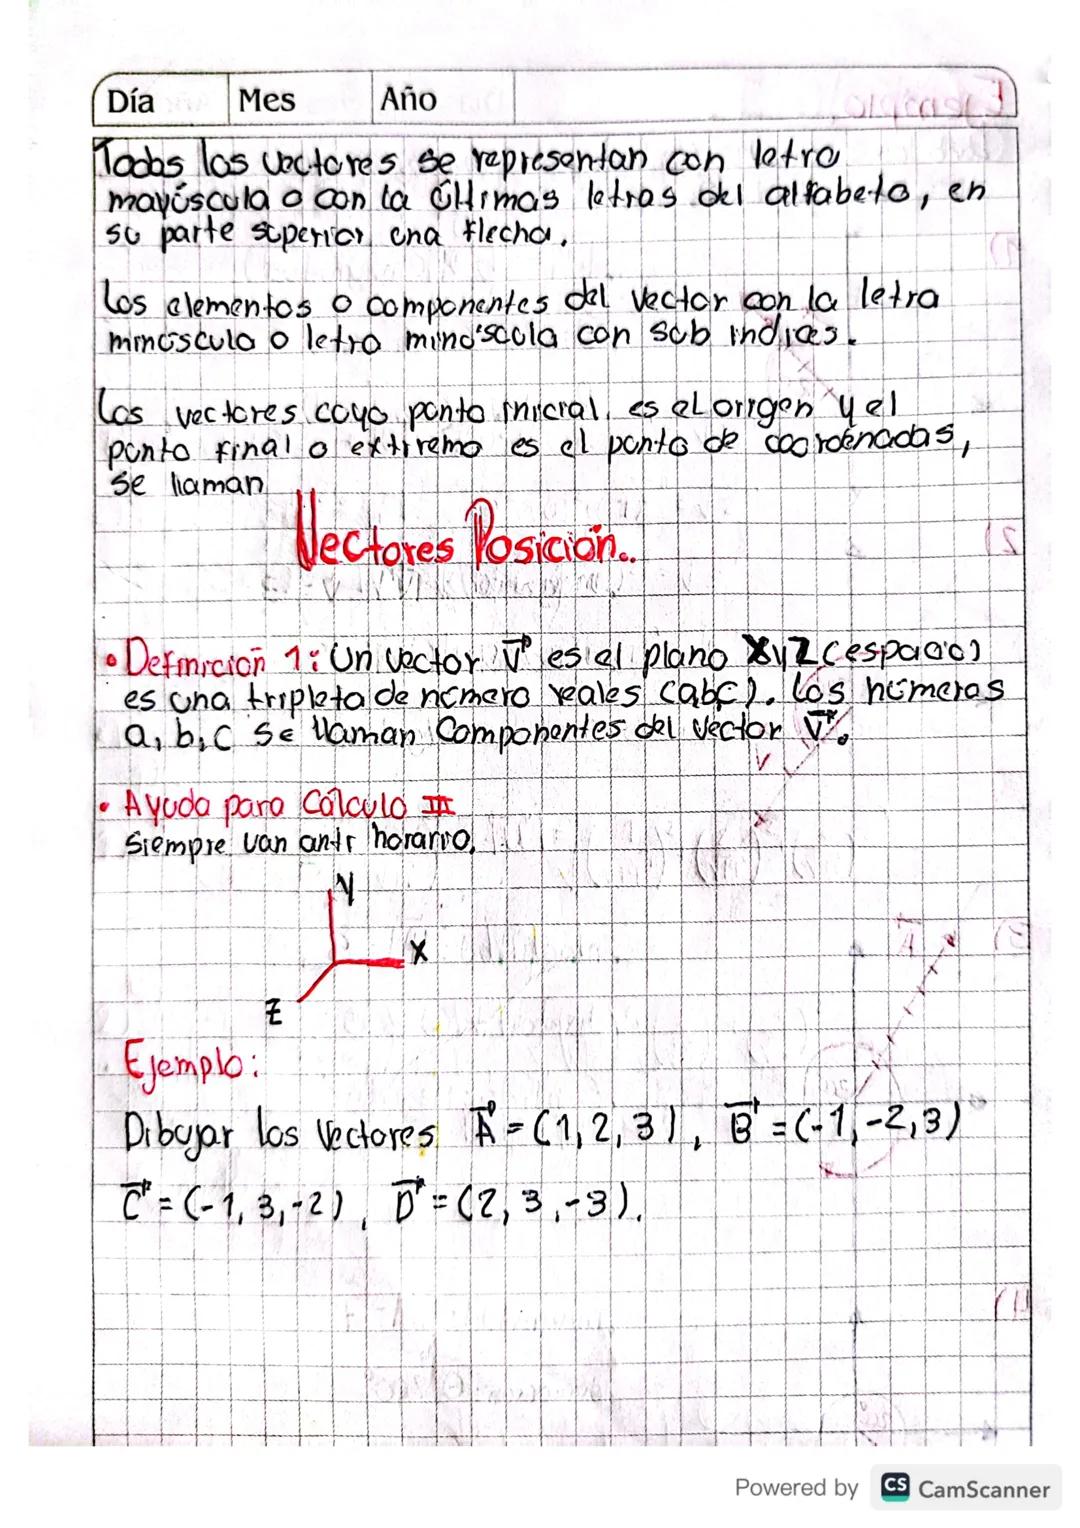 Día Mes Año
Todos los vectores se representan con letra
mayúscula o con la últimas letras del alfabeto, en
su parte superior una flecha.
Los elementos o componentes del vector con la letra
minúscula o letra minúscula con sub indices.
Los vectores cuyo punto inicial es el origen y el
punto final o extiremo es el punto de coordenadas,
se llaman
Vectores Posición..
• Definición 1: Un vector V⃗ es el plano XYZ (espacio)
es una tripleta de número reales (abc). Los números
a, b, c se llaman Componentes del vector V⃗.
• Ayuda para Cálculo III
Siempre van anti horario.
Y
X
Z
Ejemplo:
Dibujar los Vectores A⃗ = (1, 2, 3), B⃗ = (-1, -2, 3)
C⃗ = (-1, 3, -2), D⃗ = (2, 3, -3).
Powered by CS CamScanner